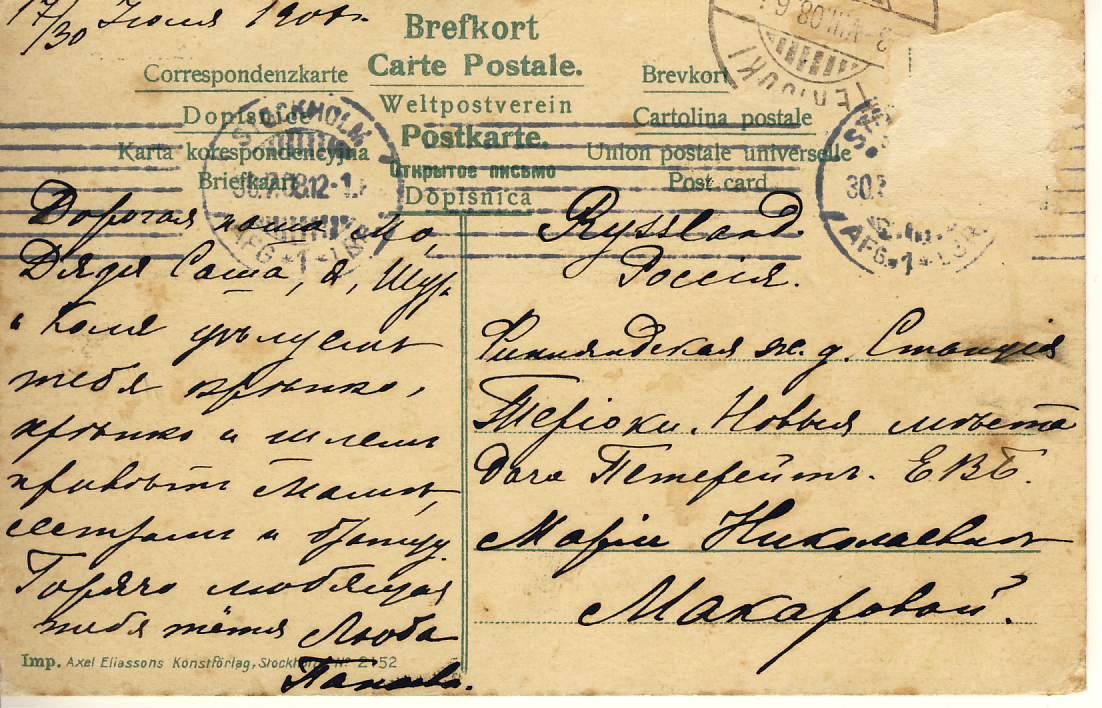 17/30 Іюля 1908 г.
Brefkort
Carte Postale.
Correspondenzkarte
Brevkort
Weltpostverein
Dopisnice
Cartolina postale
Postkarte.
Karta korespondencyjna
Union postale universelle
Открытое письмо
Briefkaart
Post card
Dopisnica
STOCKHOLM
30.7.08.12-1
AFG.·1·
TERIJOKI
Дорогая наша
Дядя Саша, я, Шура
и Коля цѣлуемъ
тебя крѣпко,
крѣпко и шлемъ
привѣтъ Мамѣ,
сестрамъ и братцу.
Горячо любящая
тебя тётя Люба
Ryssland
Россія.
Финляндская ж. д. Станція
Теріоки. Новыя мѣста
Дача Петерейтъ. ЕВБ.
Маріи Николаевнѣ
Макаровой.
Imp. Axel Eliassons Konstförlag, Stockholm Nº 2152